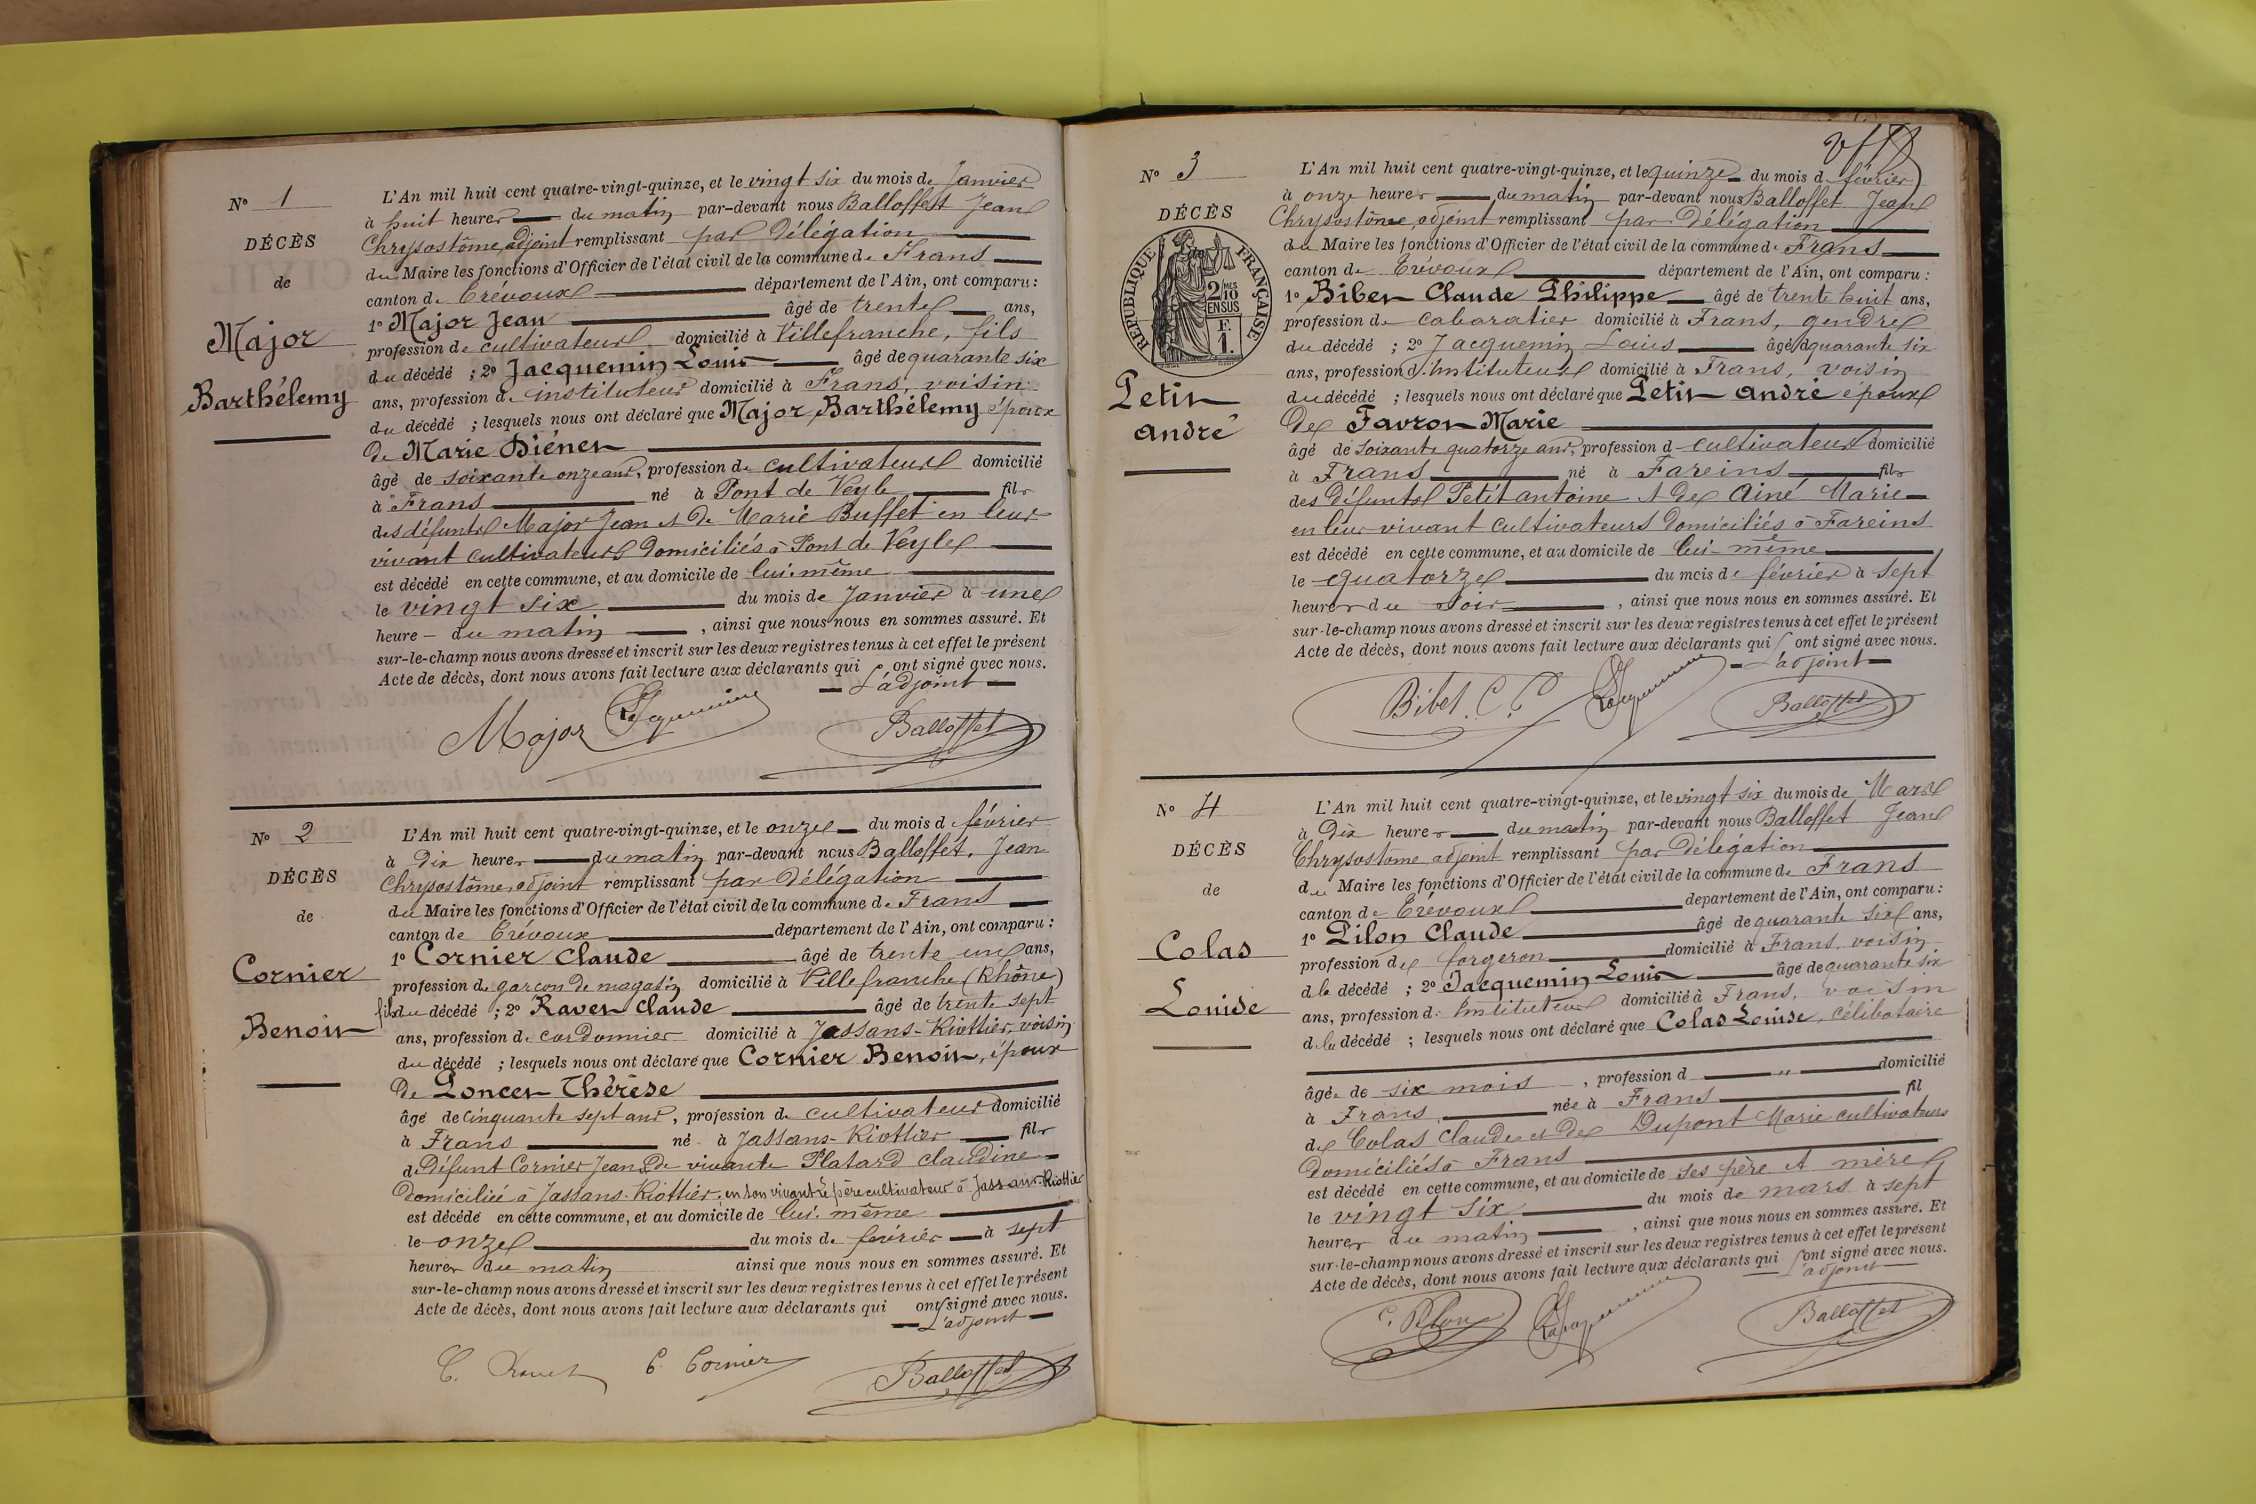 N° 1
DÉCÈS
de
Major
Barthélemy
L'An mil huit cent quatre-vingt-quinze, et le vingt six du mois de Janvier
à huit heures du matin par-devant nous Balloffet Jean
Chrysostôme, adjoint remplissant par Délégation
du Maire les fonctions d'Officier de l'état civil de la commune de Frans
canton de Trévoux département de l'Ain, ont comparu :
1° Major Jean âgé de trente ans,
profession de cultivateur domicilié à Villefranche, fils
du décédé ; 2° Jacquemin Louis âgé de quarante six
ans, profession de instituteur domicilié à Frans, voisin
du décédé ; lesquels nous ont déclaré que Major Barthélemy époux
de Marie Diénet
âgé de soixante onze ans, profession de cultivateur domicilié
à Frans né à Pont de Veyle fils
des défunts Major Jean et de Marie Buffet en leur
vivant cultivateurs domiciliés à Pont de Veyle
est décédé en cette commune, et au domicile de lui-même
le vingt six du mois de Janvier à une
heure du matin , ainsi que nous nous en sommes assuré. Et
sur-le-champ nous avons dressé et inscrit sur les deux registres tenus à cet effet le présent
Acte de décès, dont nous avons fait lecture aux déclarants qui ont signé avec nous.
L'adjoint
Major Jacquemin Balloffet
N° 2
DÉCÈS
de
Cornier
Benoit
L'An mil huit cent quatre-vingt-quinze, et le onze du mois de février
à Dix heures du matin par-devant nous Balloffet, Jean
Chrysostôme, adjoint remplissant par Délégation
du Maire les fonctions d'Officier de l'état civil de la commune de Frans
canton de Trévoux département de l'Ain, ont comparu :
1° Cornier Claude âgé de trente un ans,
profession de garçon de magasin domicilié à Villefranche (Rhône)
fils du décédé ; 2° Ravet Claude âgé de trente sept
ans, profession de cordonnier domicilié à Jassans-Riottier, voisin
du décédé ; lesquels nous ont déclaré que Cornier Benoit, époux
de Poncet Thérèse
âgé de Cinquante sept ans, profession de cultivateur domicilié
à Frans né à Jassans-Riottier fils
de Défunt Cornier Jean & de vivante Platard Claudine
domiciliée à Jassans-Riottier, en son vivant le père cultivateur à Jassans-Riottier
est décédé en cette commune, et au domicile de lui-même
le onze du mois de février à sept
heures du matin ainsi que nous nous en sommes assuré. Et
sur-le-champ nous avons dressé et inscrit sur les deux registres tenus à cet effet le présent
Acte de décès, dont nous avons fait lecture aux déclarants qui ont signé avec nous.
L'adjoint
C. Ravet C. Cornier Balloffet
N° 3
DÉCÈS
RÉPUBLIQUE FRANÇAISE
2/10 MES
EN SUS
F.
1.
Petit
André
L'An mil huit cent quatre-vingt-quinze, et le quinze du mois de février
à onze heures du matin par-devant nous Balloffet Jean
Chrysostôme, adjoint remplissant par Délégation
du Maire les fonctions d'Officier de l'état civil de la commune de Frans
canton de Trévoux département de l'Ain, ont comparu :
1° Bibet Claude Philippe âgé de trente huit ans,
profession de cabaratier domicilié à Frans, gendre
du décédé ; 2° Jacquemin Louis âgé de quarante six
ans, profession d'Instituteur domicilié à Frans, voisin
du décédé ; lesquels nous ont déclaré que Petit André époux
de Favron Marie
âgé de soixante quatorze ans, profession de cultivateur domicilié
à Frans né à Fareins fils
des défunts Petit antoine & de Ainé Marie
en leur vivant cultivateurs domiciliés à Fareins
est décédé en cette commune, et au domicile de lui-même
le quatorze du mois de février à sept
heures du soir , ainsi que nous nous en sommes assuré. Et
sur-le-champ nous avons dressé et inscrit sur les deux registres tenus à cet effet le présent
Acte de décès, dont nous avons fait lecture aux déclarants qui ont signé avec nous.
L'adjoint
Bibet. C. P Jacquemin Balloffet
N° 4
DÉCÈS
de
Colas
Louise
L'An mil huit cent quatre-vingt-quinze, et le vingt six du mois de Mars
à Dix heures du matin par-devant nous Balloffet Jean
Chrysostôme, adjoint remplissant par Délégation
du Maire les fonctions d'Officier de l'état civil de la commune de Frans
canton de Trévoux département de l'Ain, ont comparu :
1° Pilon Claude âgé de quarante six ans,
profession de forgeron domicilié à Frans, voisin
de la décédé ; 2° Jacquemin Louis âgé de quarante six
ans, profession d'Instituteur domicilié à Frans, voisin
de la décédé ; lesquels nous ont déclaré que Colas Louise, célibataire
âgée de six mois , profession d " domicilié
à Frans née à Frans fil
de Colas Claude et de Dupont Marie cultivateurs
domiciliés à Frans
est décédé en cette commune, et au domicile de ses père et mère
le vingt six du mois de mars à sept
heures du matin , ainsi que nous nous en sommes assuré. Et
sur-le-champ nous avons dressé et inscrit sur les deux registres tenus à cet effet le présent
Acte de décès, dont nous avons fait lecture aux déclarants qui ont signé avec nous.
L'adjoint
C. Pilon Jacquemin Balloffet